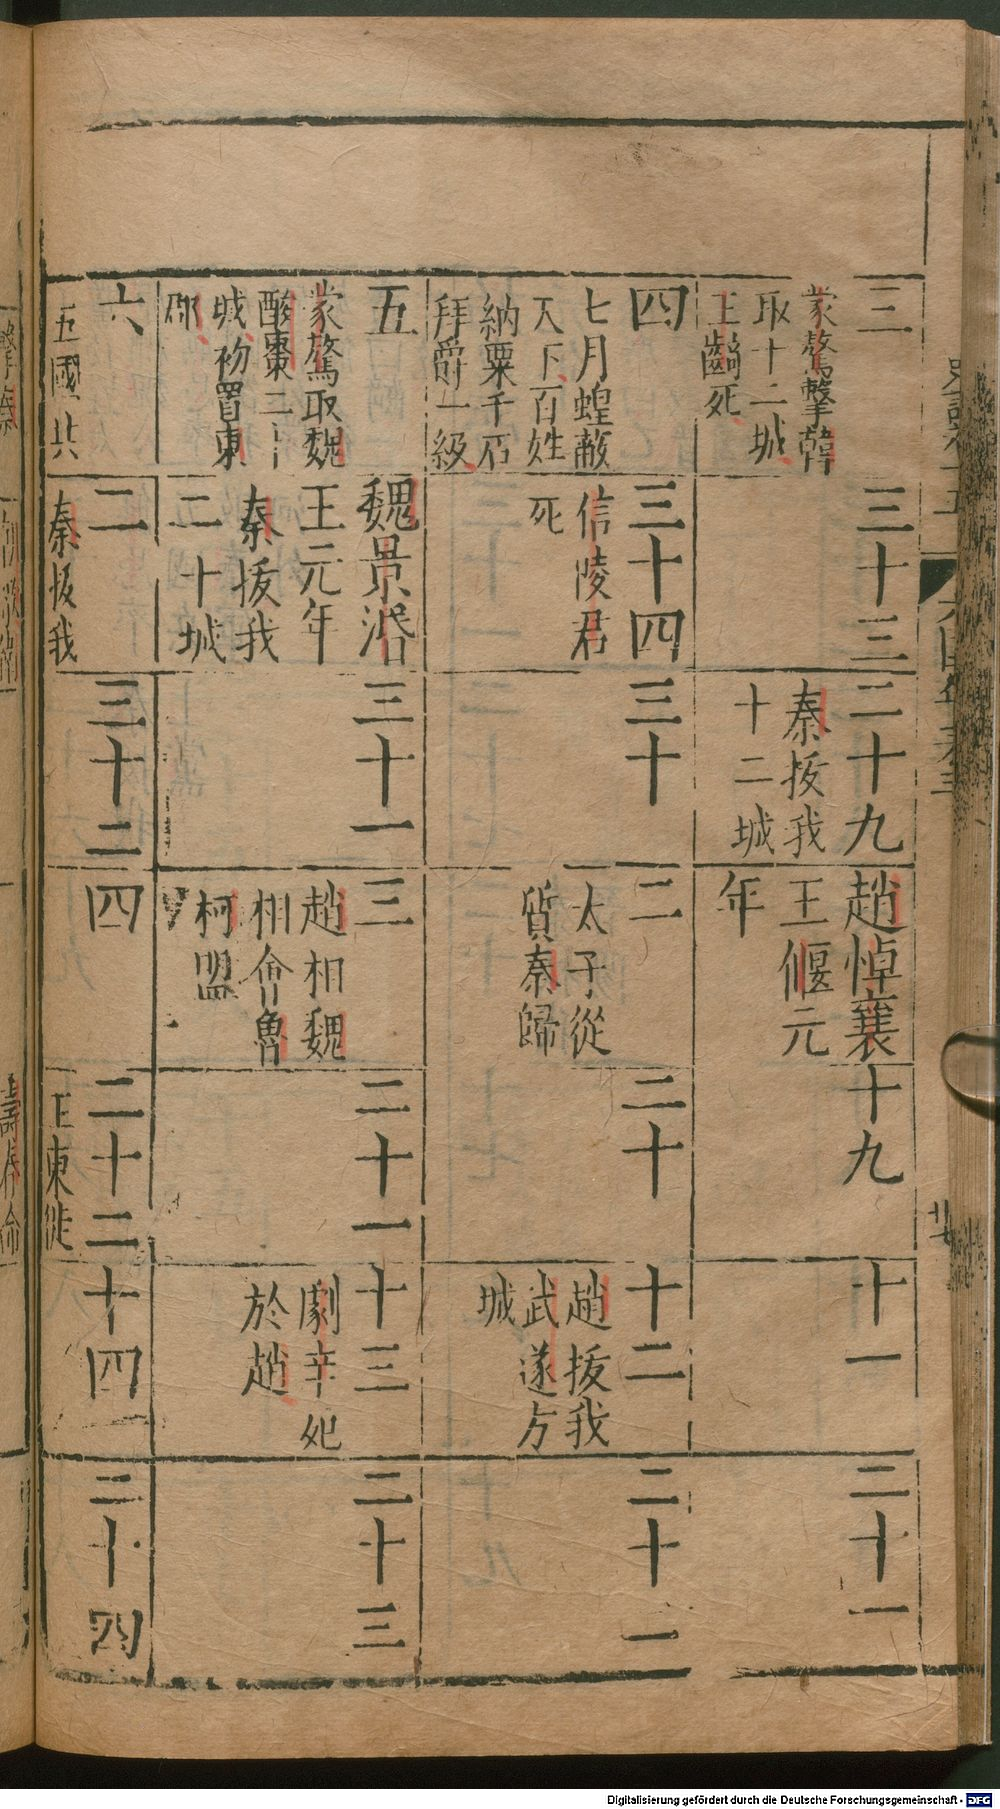 三
蒙驁擊韓
取十二城
王齮死
三十三
二十九
秦拔我
十二城
趙悼襄
王偃元
年
十九
十一
二十一
四
七月蝗蔽
天下百姓
納粟千石
拜爵一級
三十四
信陵君
死
三十
二
太子從
質秦歸
二十
十二
趙拔我
武遂方
城
二十一
五
蒙驁取魏
酸棗二十
城初置東
郡
魏景湣
王元年
秦拔我
二十城
三十一
三
趙相魏
相會魯
柯盟
二十一
十三
劇辛死
於趙
二十三
六
五國共
二
秦拔我
三十二
四
二十二
王東徙
十四
二十四
擊秦
壽春命
廿七
Digitalisierung gefördert durch die Deutsche Forschungsgemeinschaft - DFG